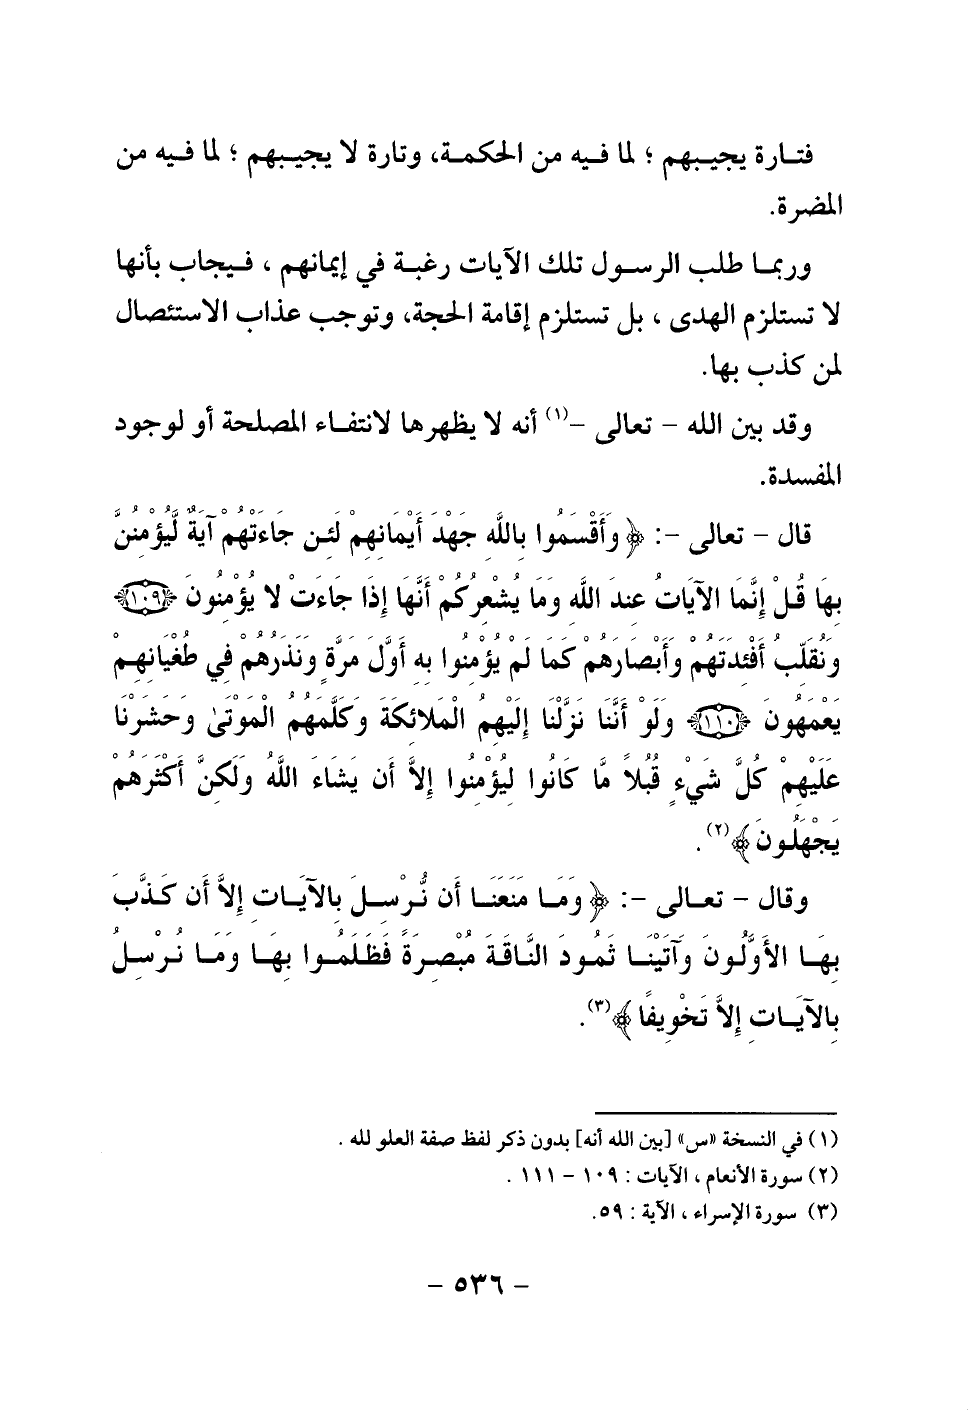 فتـارة يجيـبهم ؛ لما فـيه من الحكمـة، وتارة لا يجيـبهم ؛ لما فـيه من
المضرة.
وربمـا طلب الرسـول تلك الآيات رغبـة في إيمانهم ، فـيجاب بأنها
لا تستلزم الهدى ، بل تستلزم إقامة الحجة، وتوجب عذاب الاستئصال
لمن كذب بها.
وقد بين الله - تعالى -(١) أنه لا يظهرها لانتفـاء المصلحة أو لوجود
المفسدة.
قال - تعالى -: ﴿ وَأَقْسَمُوا بِاللَّهِ جَهْدَ أَيْمَانِهِمْ لَئِن جَاءَتْهُمْ آيَةٌ لَّيُؤْمِنُنَّ
بِهَا قُلْ إِنَّمَا الآيَاتُ عِندَ اللَّهِ وَمَا يُشْعِرُكُمْ أَنَّهَا إِذَا جَاءَتْ لا يُؤْمِنُونَ ﴿١٠٩﴾
وَنُقَلِّبُ أَفْئِدَتَهُمْ وَأَبْصَارَهُمْ كَمَا لَمْ يُؤْمِنُوا بِهِ أَوَّلَ مَرَّةٍ وَنَذَرُهُمْ فِي طُغْيَانِهِمْ
يَعْمَهُونَ ﴿١١٠﴾ وَلَوْ أَنَّنَا نَزَّلْنَا إِلَيْهِمُ الْمَلائِكَةَ وَكَلَّمَهُمُ الْمَوْتَىٰ وَحَشَرْنَا
عَلَيْهِمْ كُلَّ شَيْءٍ قُبُلاً مَّا كَانُوا لِيُؤْمِنُوا إِلاَّ أَن يَشَاءَ اللَّهُ وَلَكِنَّ أَكْثَرَهُمْ
يَجْهَلُونَ ﴾(٢) .
وقال - تعـالى -: ﴿ وَمَـا مَنَعَنَـا أَن نُّرْسِـلَ بِالآيَـاتِ إِلاَّ أَن كَذَّبَ
بِهَـا الأَوَّلُونَ وَآتَيْنَـا ثَمُودَ النَّاقَةَ مُبْصِرَةً فَظَلَمُـوا بِهَـا وَمَـا نُرْسِلُ
بِالآيَـاتِ إِلاَّ تَخْوِيفًا ﴾(٣).
(١) في النسخة «س» [بين الله أنه] بدون ذكر لفظ صفة العلو لله .
(٢) سورة الأنعام ، الآيات : ١٠٩ - ١١١ .
(٣) سورة الإسراء ، الآية : ٥٩.
- ٥٣٦ -